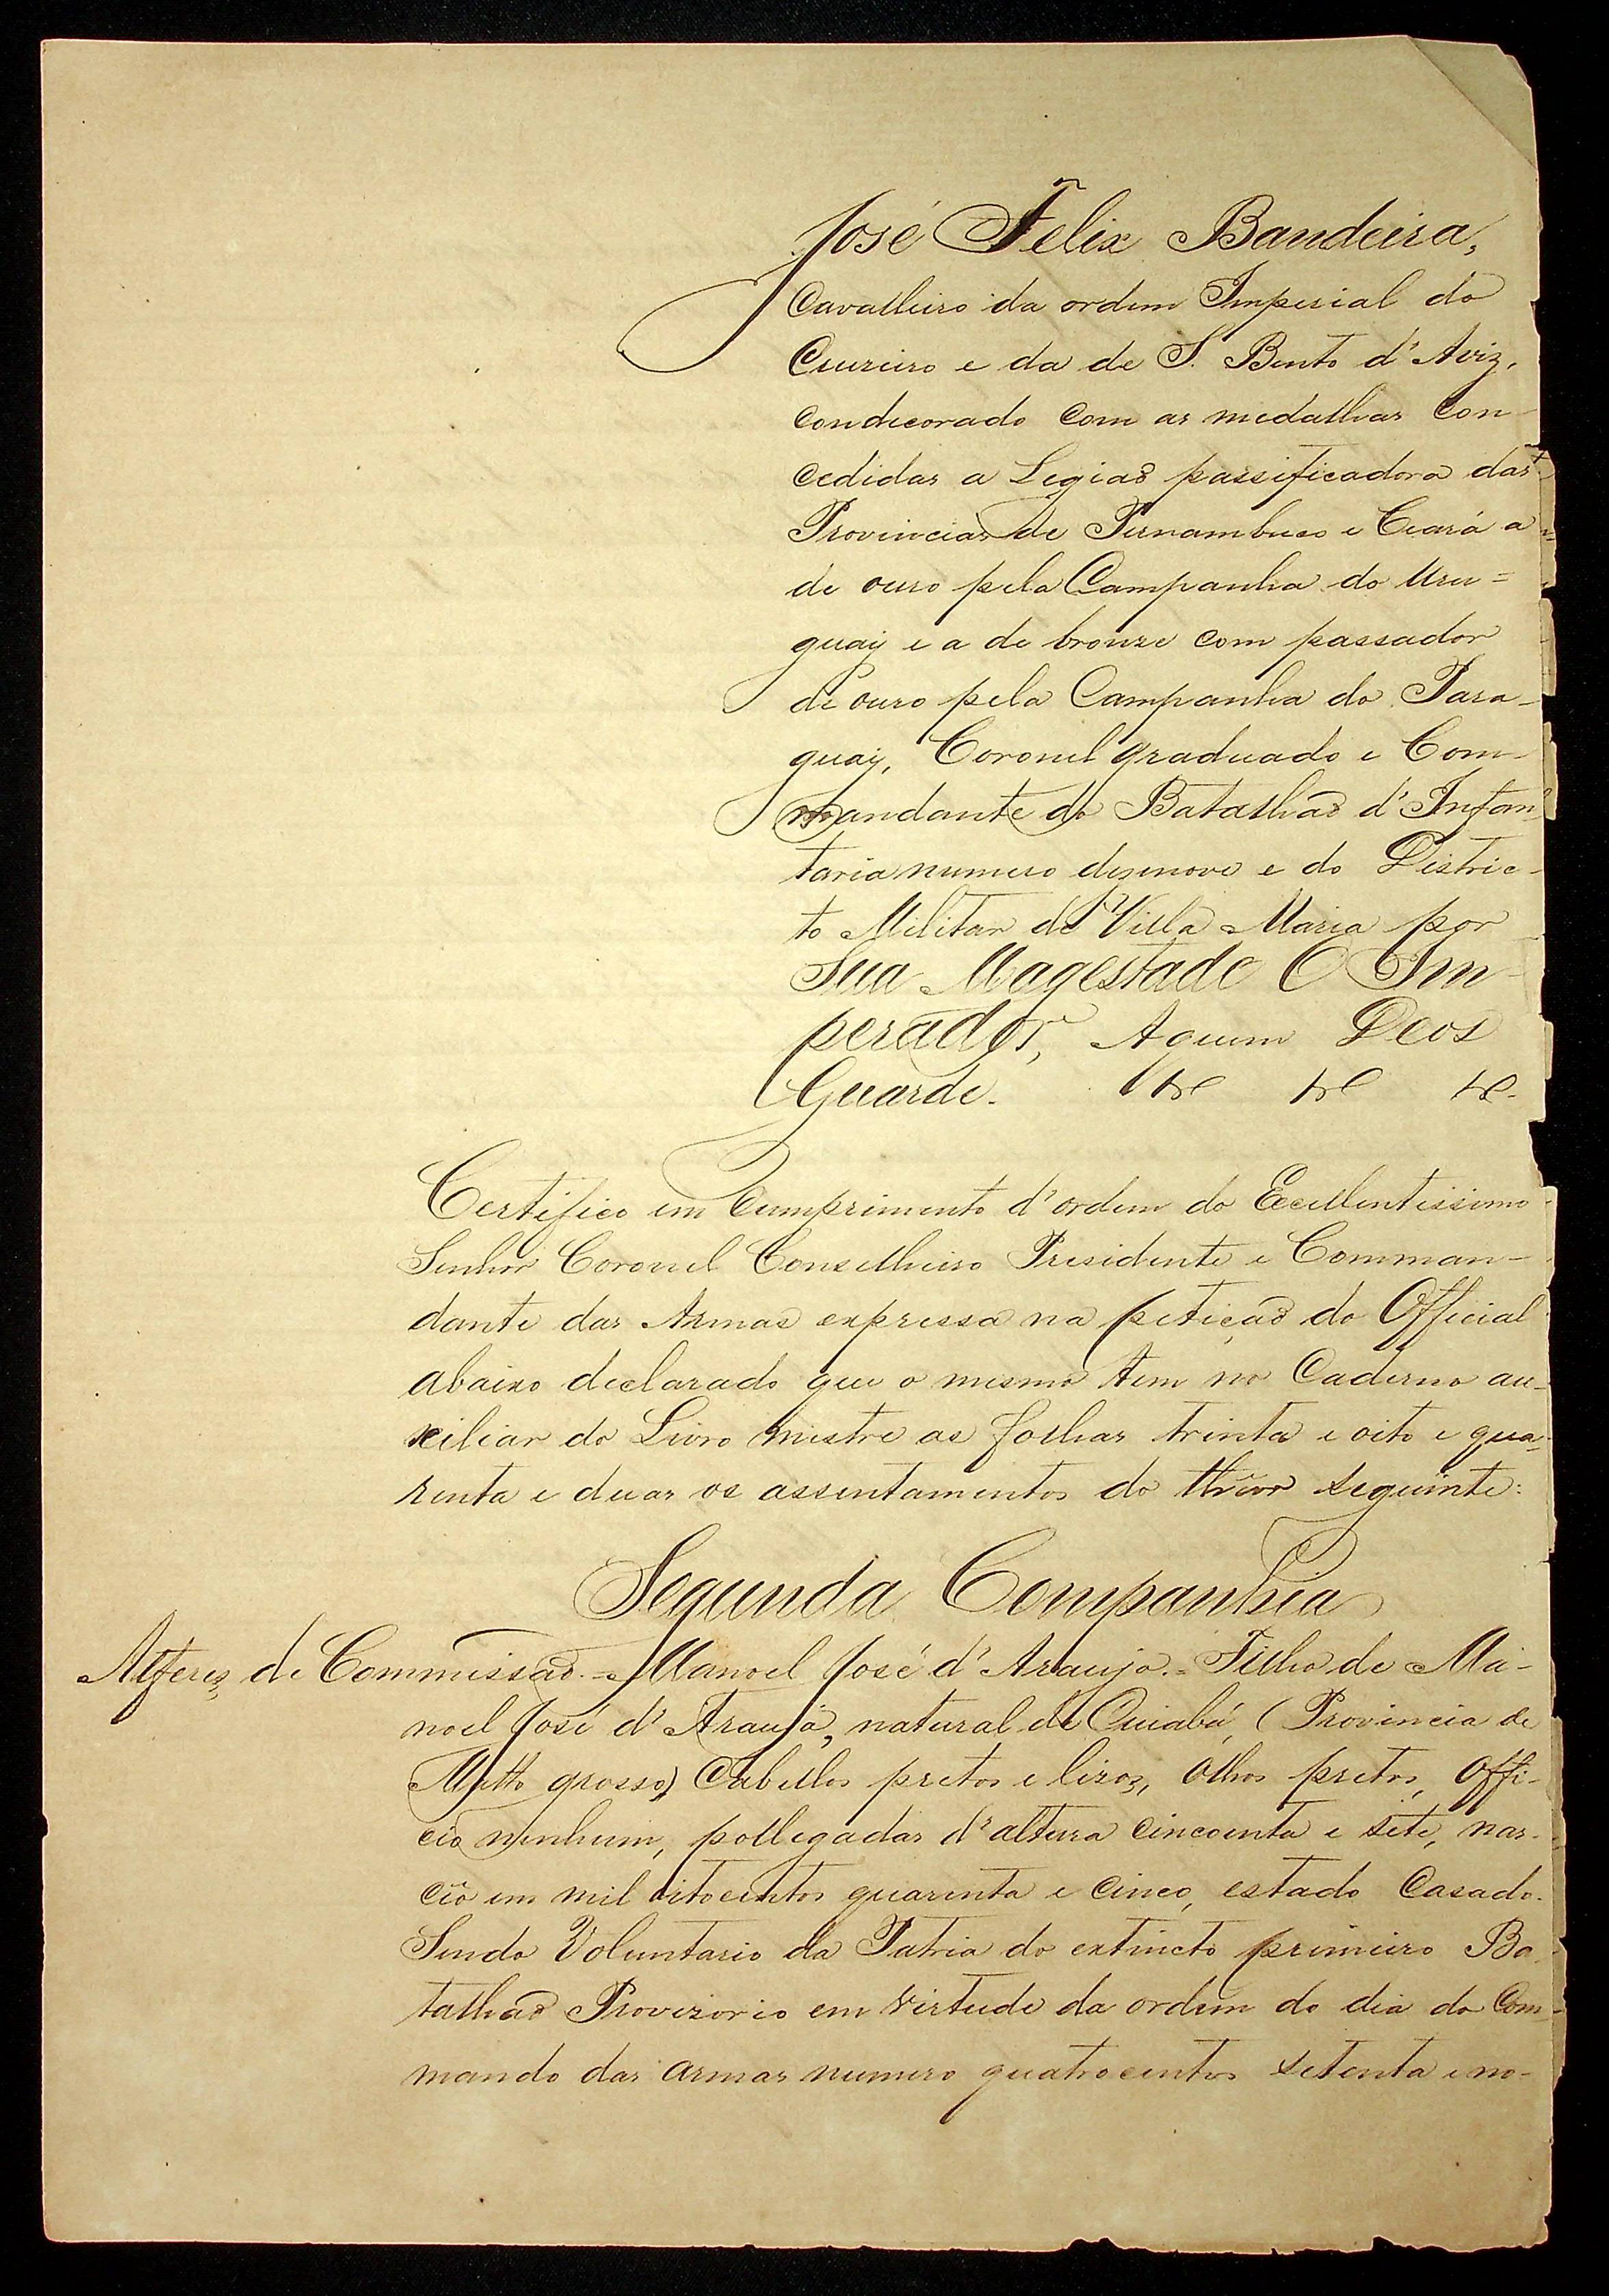 José Felix Bandeira,
Cavalleiro da ordem Imperial do
Cruzeiro e da de S. Bento d'Aviz,
condecorado com as medalhas con-
cedidas a Legiaõ passificadora das
Provincias de Pernambuco e Ceará a
de ouro pela Campanha do Uru=
guay e a de bronze com passador
de ouro pela Campanha do Para-
guay, Coronel graduado e Com-
mandante do Batalhaõ d'Infan
taria numero desenove e do Distric-
to Militar de Villa Maria por
Sua Magestade O Im-
perador, Aquem Deos
Guarde. &c &c &c.
Certifico em Cumprimento d'ordem do Excellentissimo
Senhor Coronel Conselheiro Presidente e Comman-
dante das Armas expressa na petiçaõ do Official
abaixo declarado que o mesmo tem no Caderno au-
xiliar do Livro mestre as folhas trinta e oito e qua-
renta e duas os assentamentos do thêor seguinte:
Segunda Companhia
Alferes de Commissaõ.=Manoel José d'Araujo.=Filho de Ma-
noel José d'Araujo, natural de Cuiabá, (Provincia de
Matto grosso) Cabellos pretos e lizos, Olhos pretos, Offi-
cio nenhum, pollegadas d'altura cincoenta e sete, nas-
cêo em mil oitocentos quarenta e cinco, estado Casado.
Sendo Voluntario da Patria do extincto primeiro Ba-
talhaõ Provizorio em virtude da ordem do dia do Com-
mando das armas numero quatrocentos setenta e no-